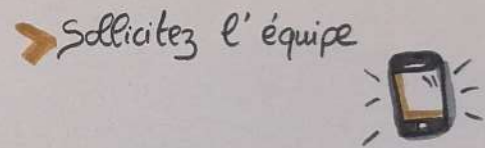 Sollicitez l'équipe